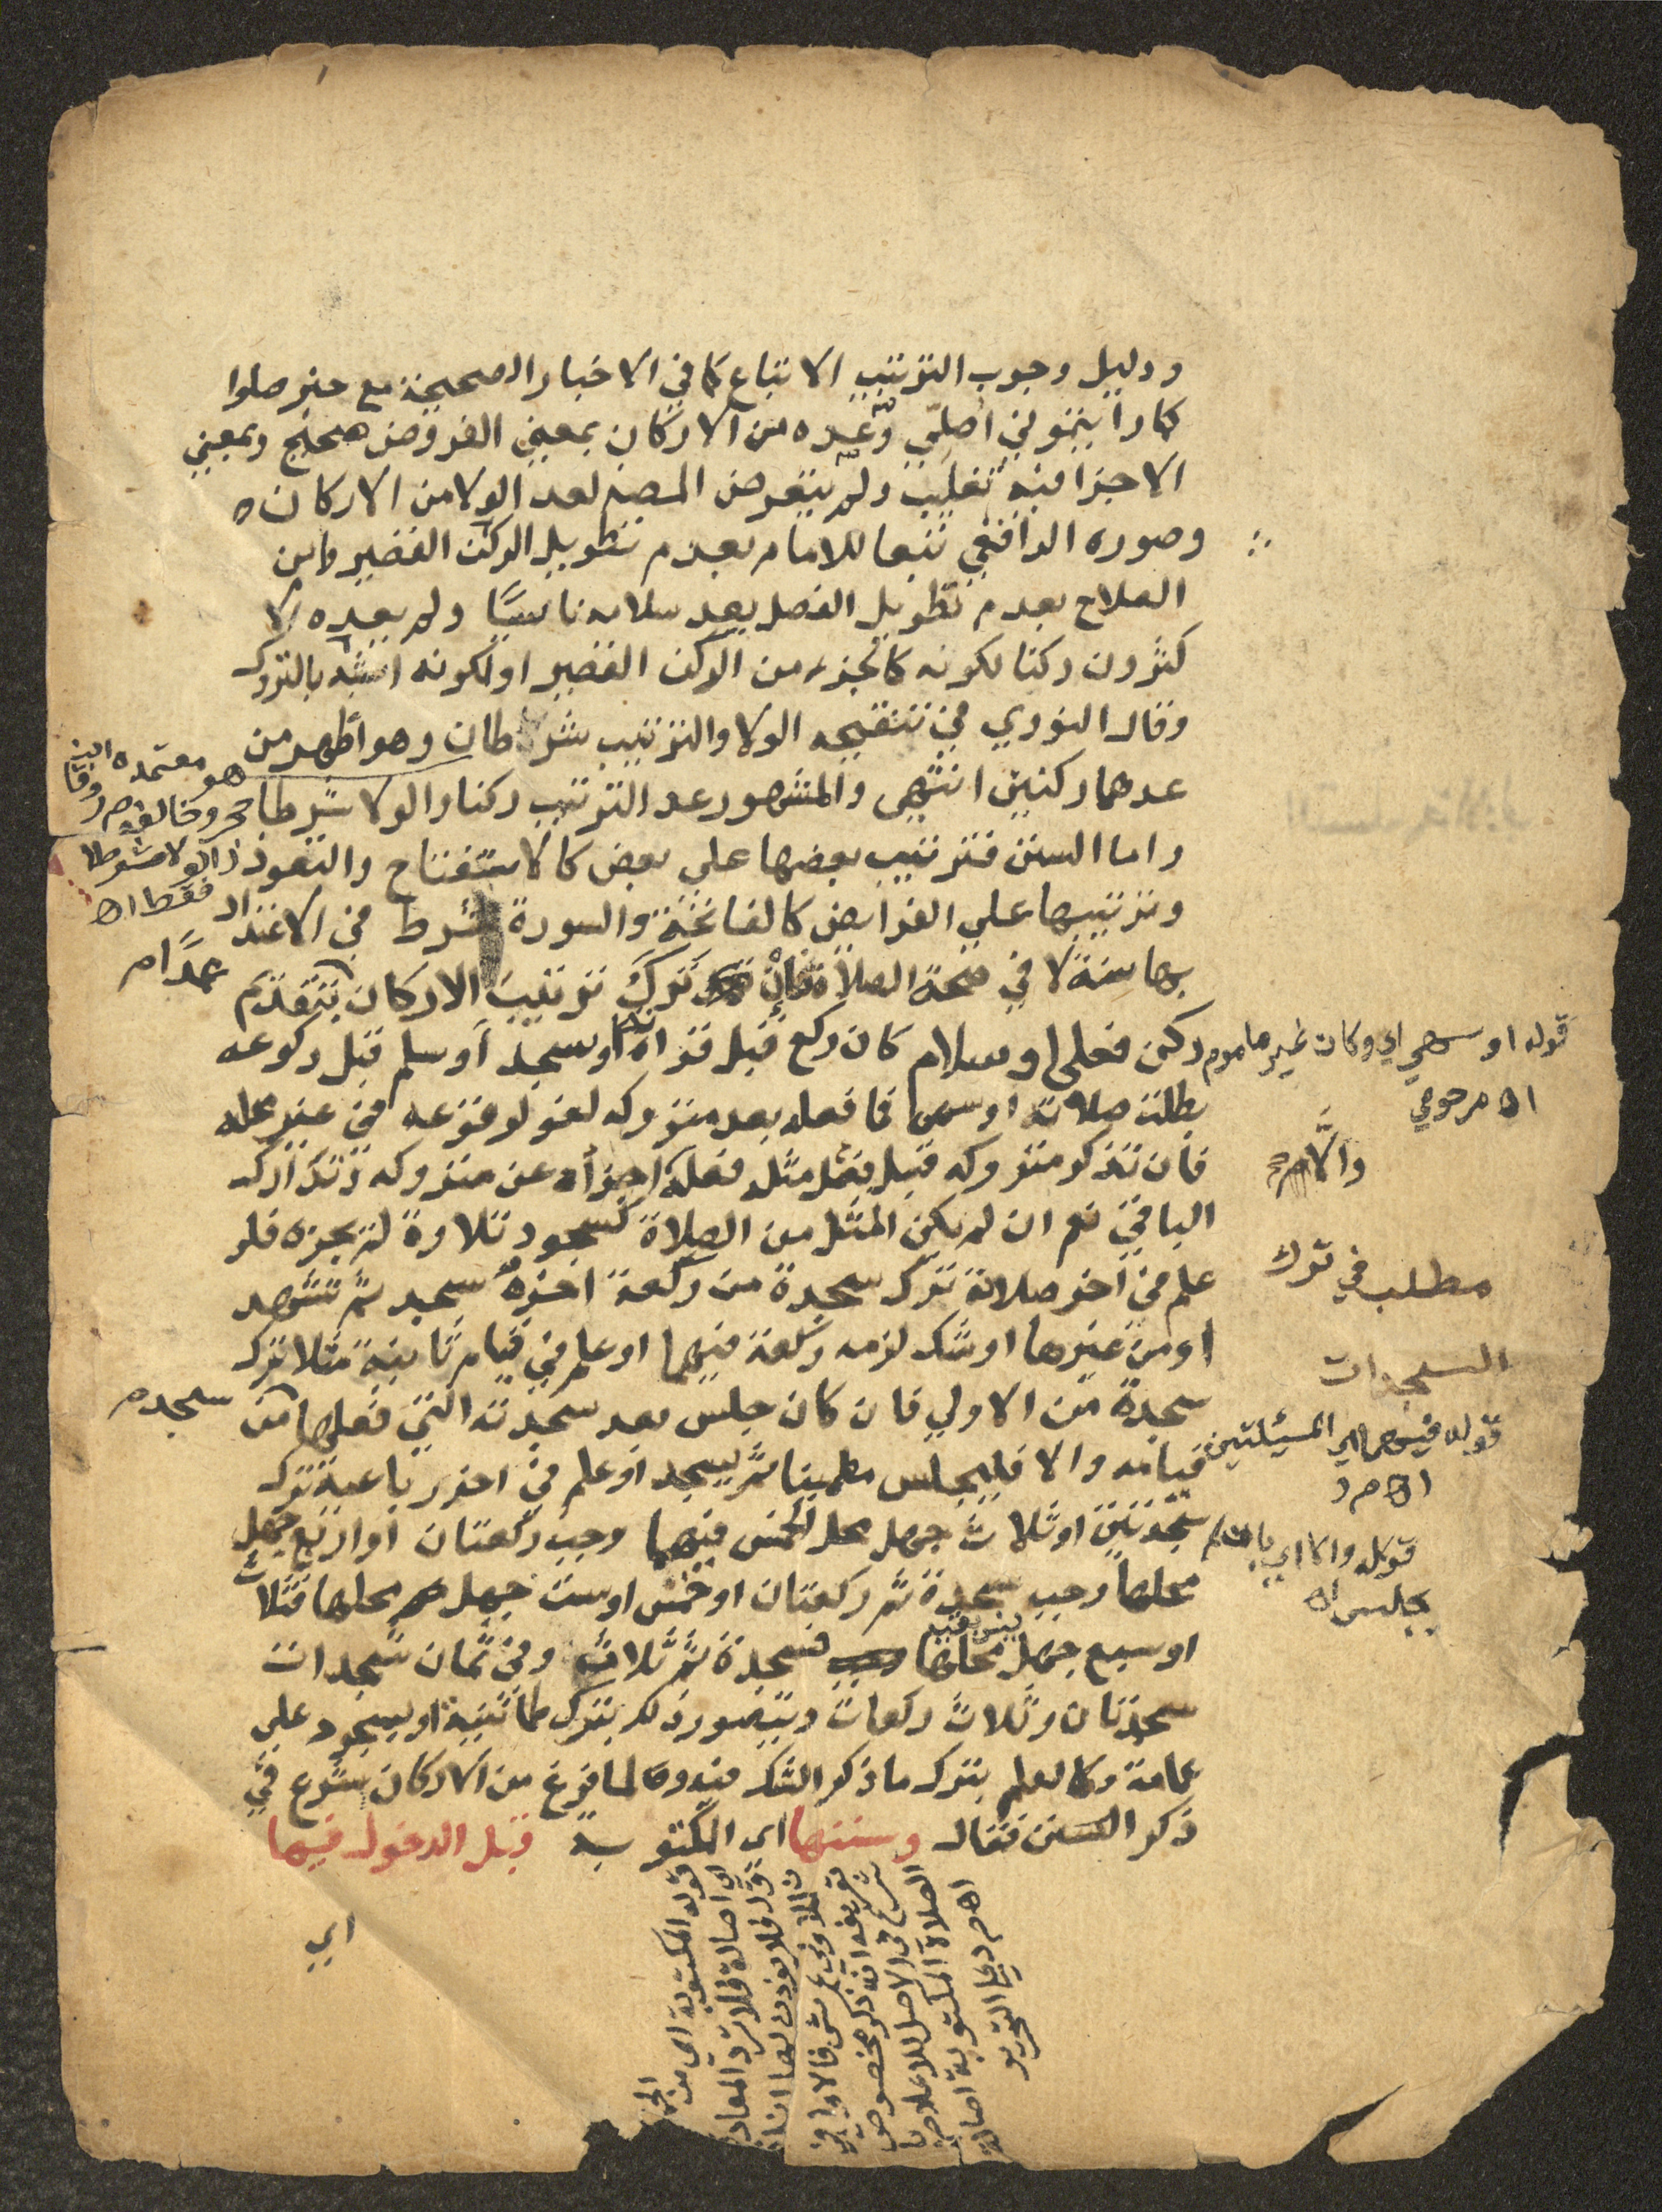 ودليل وجوب الترتيب الاتباع كما في الاخبار الصحيحة مع خبر صلوا
كما رأيتموني اصلي وعده من الاركان بمعنى الفروض صحيح وبمعنى
الاجزا فيه تغليب ولم يتعرض المصنف لعد الولا من الاركان
وصوره الرافعي تبعا للامام بعدم تطويل الركن القصير وابن
الصلاح بعدم تطويل الفصل بعد سلامه ناسيًا ولم يعده الا
كثرون ركنا لكونه كالجزء من الركن القصير او لكونه اشبه بالتروك
وقال النووي في تنقيحه الولا والترتيب شرطان وهو أظهر من
عدهما ركنين انتهى والمشهور عد الترتيب ركنا والولا شرطا
واما السنن فترتيب بعضها على بعض كالاستفتاح والتعوذ
وترتيبها على الفرايض كالفاتحة والسورة شرط في الاعتداد
بها سنة لا في صحة الصلاة فإن تَرَكَ ترتيبَ الاركان بتقدم
ركن فعلى او سلام كان ركع قبل قراته او سجد أو سلم قبل ركوعه
بطلت صلاته او سهى فما فعله بعد متروكه لغو لوقوعه في غير محله
فأن تذكر متروكه قبل فعل مثله فعله اجزأه عن متروكه وتدارك
الباقي نعم ان لم يكن المثل من الصلاة كسجود تلاوة لم يجزه فلو
علم في آخر صلاته ترك سجدة من ركعة اخيرة سجد ثم تشهد
او من غيرها او شك لزمه ركعة فيهما او علم في قيام ثانية مثلا ترك
سجدة من الاولى فان كان جلس بعد سجدته التي فعلها سجد من
قيامه والا فليجلس مطمينا ثم يسجد أو علم في اخر رباعية ترك
سجدتين او ثلاث جهل محل الخمس فيهما وجب ركعتان أو اربع جهل
محلها وجب سجدة ثم ركعتان او خمس او ست جهل محلها فثلاث
او سبع جهل محلها فسجدة ثم ثلاث وفي ثمان سجدات
سجدتان وثلاث ركعات ويتصور ذلك بترك طمأنينة او بسجود على
عمامة وكالعلم بترك ما ذكر الشك فيه ولما فرغ من الاركان شرع في
ذكر السنن فقال وسننها اي المكتوبة قبل الدخول فيها
اي
هو معتمده ابن
حجر وخالفه م ر وقا
الولا شرطا
فقط اه
عمدًا م
قوله او سهى اي وكان غير ماموم
اه مرحومي
والا م
مطلب في ترك
السجدات
قوله فيهما اي المسئلتين
اه م د
قوله والا اي بان لم
يجلس اه
قوله المكتوبة اي من الخمـ
اي اصالة فلا ترد المعادة
شرع في الاصل للاعلام با
الصلاة المكتوبة اصالة
اه م د على التحرير